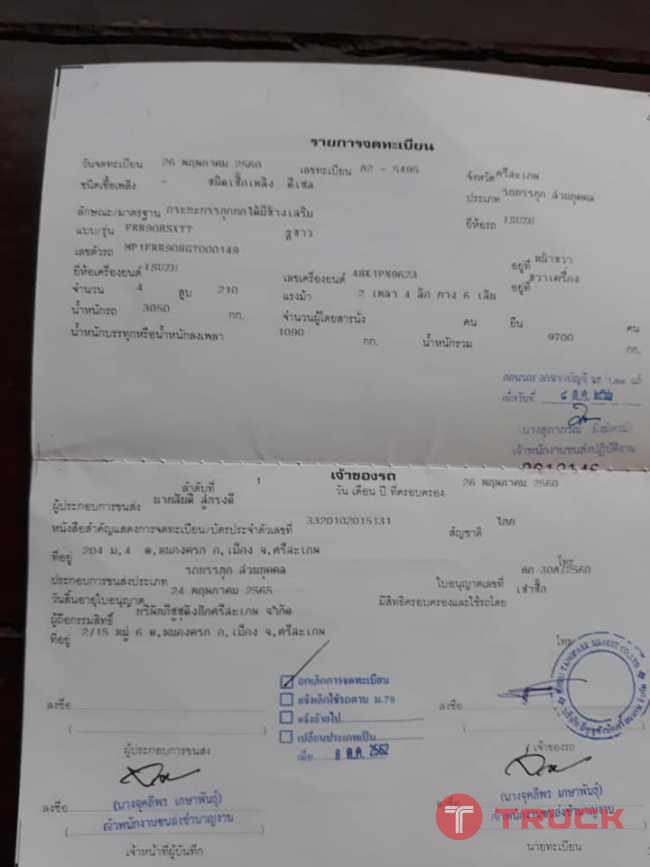 รายการจดทะเบียน
วันจดทะเบียน 26 พฤษภาคม 2560 เลขทะเบียน 82 - 5495 จังหวัด ศรีสะเกษ
ชนิดเชื้อเพลิง - ชนิดเชื้อเพลิง ดีเซล ประเภท รถบรรทุก ส่วนบุคคล
ลักษณะ/มาตรฐาน กระบะบรรทุกยกได้มีข้างเสริม ยี่ห้อรถ ISUZU
แบบ/รุ่น FRR90HSXTT สีขาว
เลขตัวรถ อยู่ที่ หน้าขวา
ยี่ห้อเครื่องยนต์ ISUZU เลขเครื่องยนต์ 4HK1PN9623 อยู่ที่ ขวาเครื่อง
จำนวน 4 สูบ 210 แรงม้า 2 เพลา 4 ล้อ ยาง 6 เส้น
น้ำหนักรถ 3050 กก. จำนวนผู้โดยสารนั่ง คน ยืน คน
น้ำหนักบรรทุกหรือน้ำหนักลงเพลา 1090 กก. น้ำหนักรวม 9700 กก.
เมื่อวันที่ ๘ ต.ค. ๒๕๖๒
เจ้าพนักงานขนส่งปฏิบัติงาน
เจ้าของรถ
ลำดับที่ 1 วัน เดือน ปี ที่ครอบครอง 26 พฤษภาคม 2560
ผู้ประกอบการขนส่ง
หนังสือสำคัญแสดงการจดทะเบียน/บัตรประจำตัวเลขที่ 3320102015131 สัญชาติ ไทย
ที่อยู่ 204 ม.4 ต.หนองครก อ.เมือง จ.ศรีสะเกษ โทร
ประกอบการขนส่งประเภท รถบรรทุก ส่วนบุคคล ใบอนุญาตเลขที่
วันสิ้นอายุใบอนุญาต 24 พฤษภาคม 2565 มีสิทธิครอบครองและใช้รถโดย เช่าซื้อ
ผู้ถือกรรมสิทธิ์
ที่อยู่ 2/15 หมู่ 6 ต.หนองครก อ.เมือง จ.ศรีสะเกษ โทร
ยกเลิกการจดทะเบียน
แจ้งเลิกใช้รถตาม ม.79
แจ้งย้ายไป
เปลี่ยนประเภทเป็น
เมื่อ 8 ต.ค. 2562
ลงชื่อ ลงชื่อ
ผู้ประกอบการขนส่ง เจ้าของรถ
(นางจุคลีพร เกษาพันธุ์) (นางจุคลีพร เกษาพันธุ์)
ลงชื่อ เจ้าพนักงานขนส่งชำนาญงาน ลงชื่อ เจ้าพนักงานขนส่งชำนาญงาน
เจ้าหน้าที่ผู้บันทึก นายทะเบียน
TRUCK